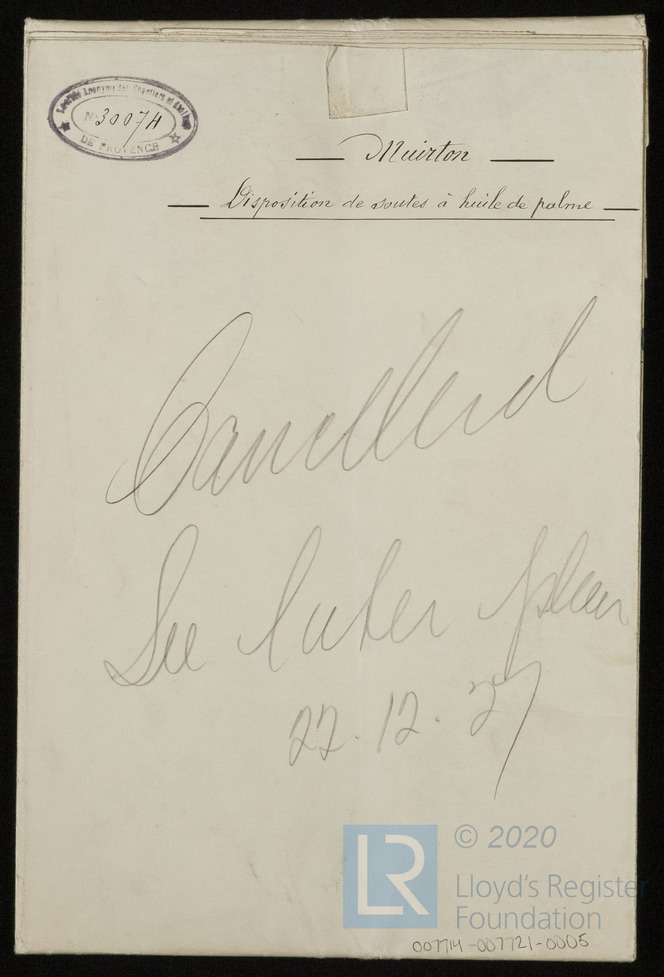 Société Anonyme des Chantiers et Ateliers
N° 30074
DE PROVENCE
Muirton
Disposition de soutes à huile de palme
Cancelled
See later plan
22.12.27
LR
© 2020
Lloyd's Register
Foundation
007714-007721-0005